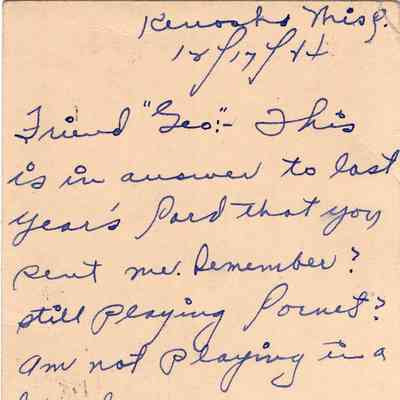 Kenosha Wisc.
12/17/44
Friend "Geo":- This
is in answer to last
year's Card that you
sent me. Remember?
still playing Cornet?
am not playing in a